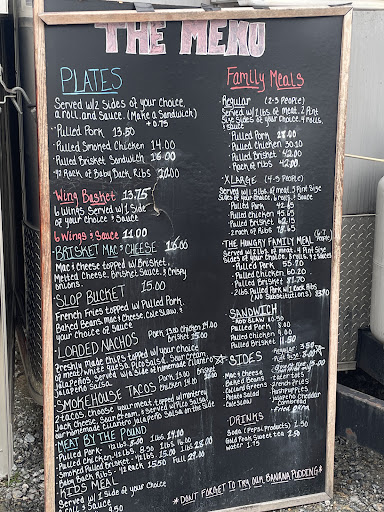 THE MENU
PLATES
Served w/2 Sides of your choice,
a roll, and Sauce. (Make a Sandwich)
+0.75
Pulled Pork 13.50
Pulled Smoked Chicken 14.00
Pulled Brisket Sandwich 16.00
Rack of Baby Back Ribs
Wing Basket 13.75
6 Wings Served w/1 Side
of your choice & Sauce
6 Wings & Sauce 11.00
BRISKET MAC & CHEESE 16.00
Mac & Cheese topped w/Brisket,
Melted Cheese, Brisket Sauce, & Crispy
Onions.
SLOP BUCKET 15.00
French Fries topped w/Pulled Pork,
Baked Beans, Mac & Cheese, Cole Slaw, &
your choice of Sauce
LOADED NACHOS Pork 13.00 Chicken 14.00
Brisket 15.00
Freshly made chips topped w/your choice
of meat, white queso, Pulse Salsa, Sour Cream,
Jalapeños. Served w/1 side of homemade cilantro
Jalapeno Salsa.
SMOKEHOUSE TACOS Pork 13.00 Brisket
Chicken 14.00
2 tacos. Choose your meat, topped w/monterey
Jack Cheese, Sour Cream, & served w/Pulse Salsa/
our homemade Cilantro Jalapeño Salsa on the Side
MEAT BY THE POUND
Pulled Pork 1/2 lbs. 1 lbs. 14.00
Pulled Chicken 1/2 lbs. 8.50 1 lbs.
Smoked Pulled Brisket 1/2 lbs. 15.00 1 lbs.
Baby Back Ribs 1/2 rack 15.50 Full 29.00
KIDS MEAL
Served w/1 Side of your choice
& roll & Sauce
9.50
Family Meals
Regular (2-3 PEOPLE)
Served w/1 lbs of meat, 2 Pint
Size Sides of your choice, 4 rolls,
1 Sauce
Pulled Pork 28.00
Pulled Chicken 30.10
Pulled Brisket 42.00
Rack of Ribs 42.00
XLARGE (4-5 PEOPLE)
Served w/1.5 lbs. of meat, 3 Pint Size
Sides of your choice, 6 rolls, 2 Sauce
Pulled Pork 42.65
Pulled Chicken 45.65
Pulled Brisket 62.15
2 rack of Ribs 78.65
THE HUNGRY FAMILY MEAL (6-7 People)
Served w/2 lbs. of meat, 4 Pint Size
Sides of your choice, 8 rolls, & 2 Sauces
Pulled Pork 55.70
Pulled Chicken 60.20
Pulled Brisket 81.70
2 lbs. Pulled Pork w/1 Rack Ribs
(NO Substitutions)
SANDWICH
ADD SLAW $0.50
Pulled Pork 8.00
Pulled Chicken 9.00
Pulled Brisket 11.50
☆ SIDES
Regular 3.50
Mac & Cheese
Baked Beans
Collard Greens
Potato Salad
Cole Slaw
tater tots
French Fries
Hushpuppies
Jalapeño Cheddar
Cornbread
Fried Okra
DRINKS
Soda (Pepsi Products) 2.50
Gold Peak Sweet Tea 2.50
Water 1.75
*DON'T FORGET TO TRY OUR BANANA PUDDING*